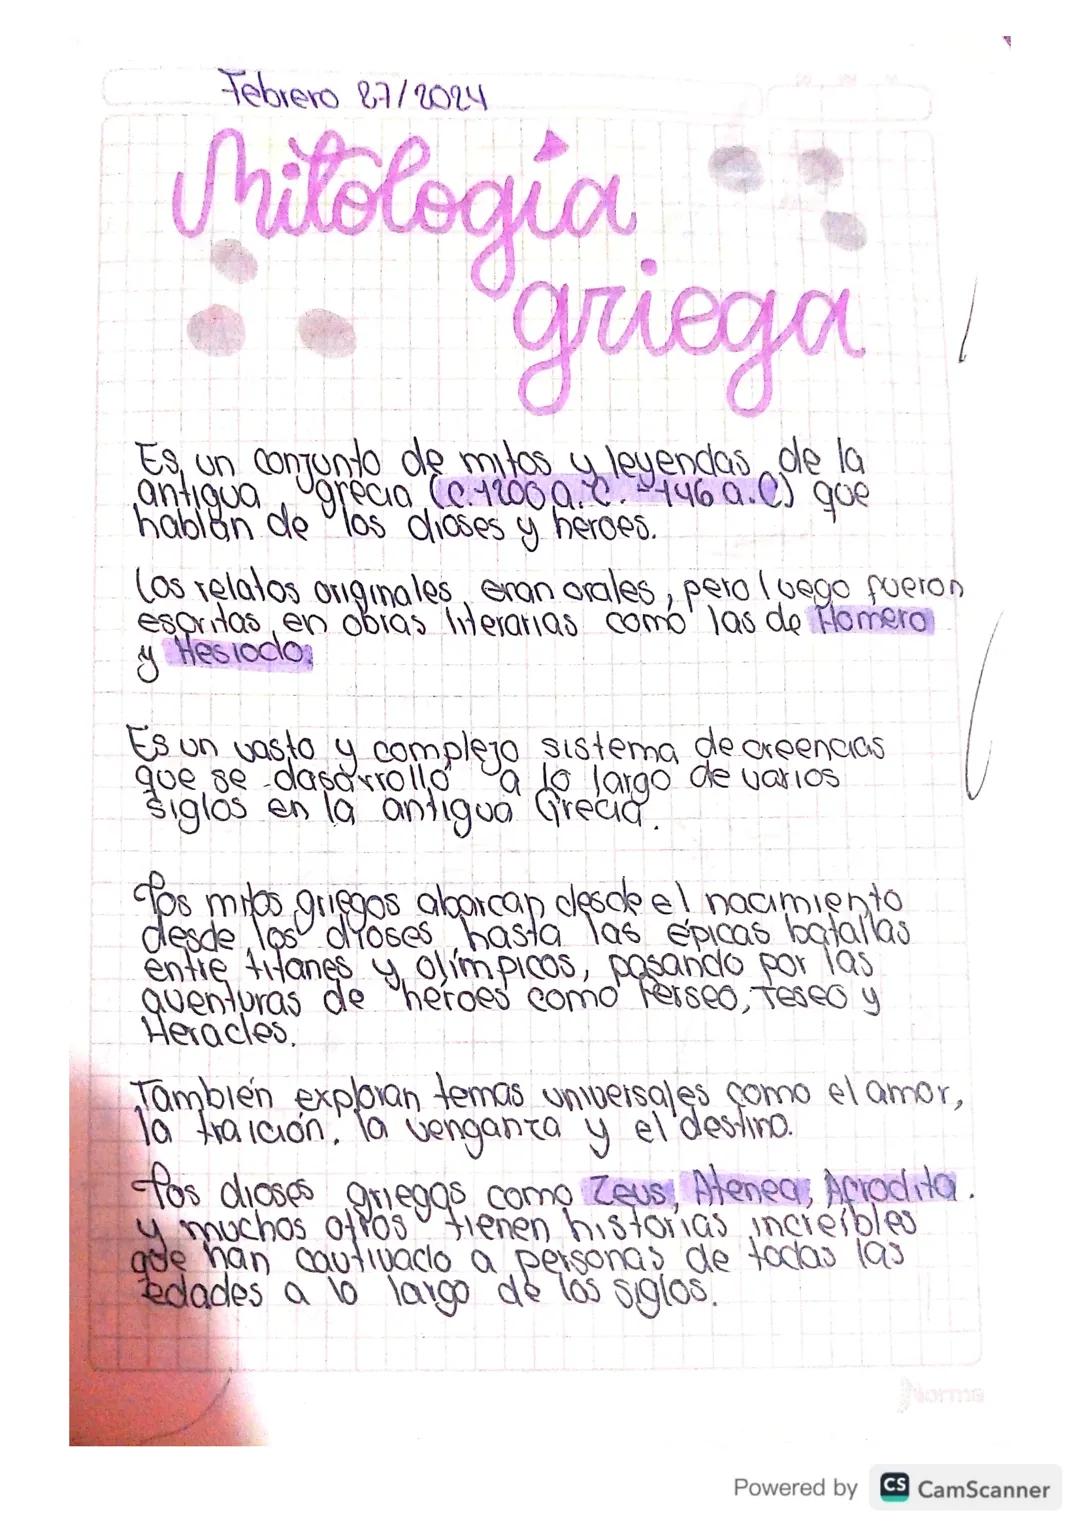 Febrero 27/2024
Mitología
griega
Es un conjunto de mitos y leyendas de la
antigua grecia (c.1200 a.C. - 146 a.C) que
hablan de los dioses y heroes.
Los relatos originales eran orales, pero luego fueron
escritas en obras literarias como las de Homero
y Hesiodo.
Es un vasto y complejo sistema de creencias
que se dasarrolló a lo largo de varios
siglos en la antigua Grecia.
Los mitos griegos abarcan desde el nacimiento
desde los dioses hasta las épicas batallas
entre titanes y olímpicos, pasando por las
aventuras de héroes como Perseo, Teseo y
Heracles.
También exploran temas universales como el amor,
la traición, la venganza y el destino.
Los dioses griegos como Zeus, Atenea, Afrodita.
y muchos otros tienen historias increíbles
que han cautivado a personas de todas las
edades a lo largo de los siglos.
Norma
Powered by CS CamScanner